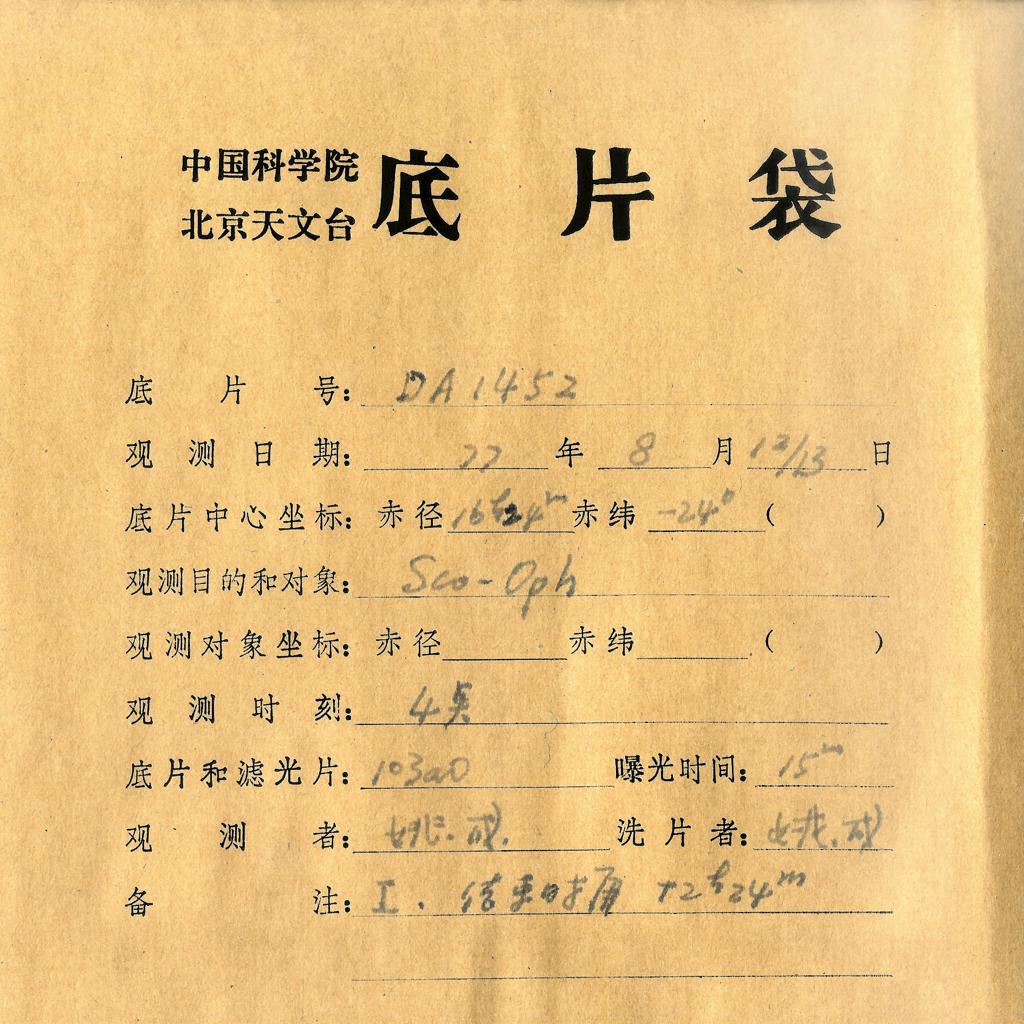 中国科学院
北京天文台 底片袋
底片号: DA1452
观测日期: 77年 8月 12/13日
底片中心坐标: 赤径 16h24m 赤纬 -24° ( )
观测目的和对象: Sco-Oph
观测对象坐标: 赤径 赤纬 ( )
观测时刻: 4
底片和滤光片: 103aO 曝光时间: 15m
观测者: 姚.
洗片者: 姚.
备注: I. 结束时 +2h24m